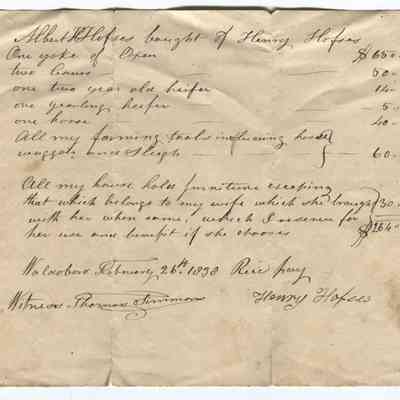 Albert H Hofses bought of Henry Hofses
One yoke of Oxen $ 65
two 50
one two year old heifer 14
one yearling heifer 5
one horse 40
All my farming tools inclusing horse
waggon and sleigh 60
All my house hold furniture excepting
that which belongs to my wife which she brought 30
with her when came, which I reserve for
her use and benefit if she chooses $264
Waldoboro February 26th 1838 Recd pay
Witness Thomas Simmons Henry Hofses